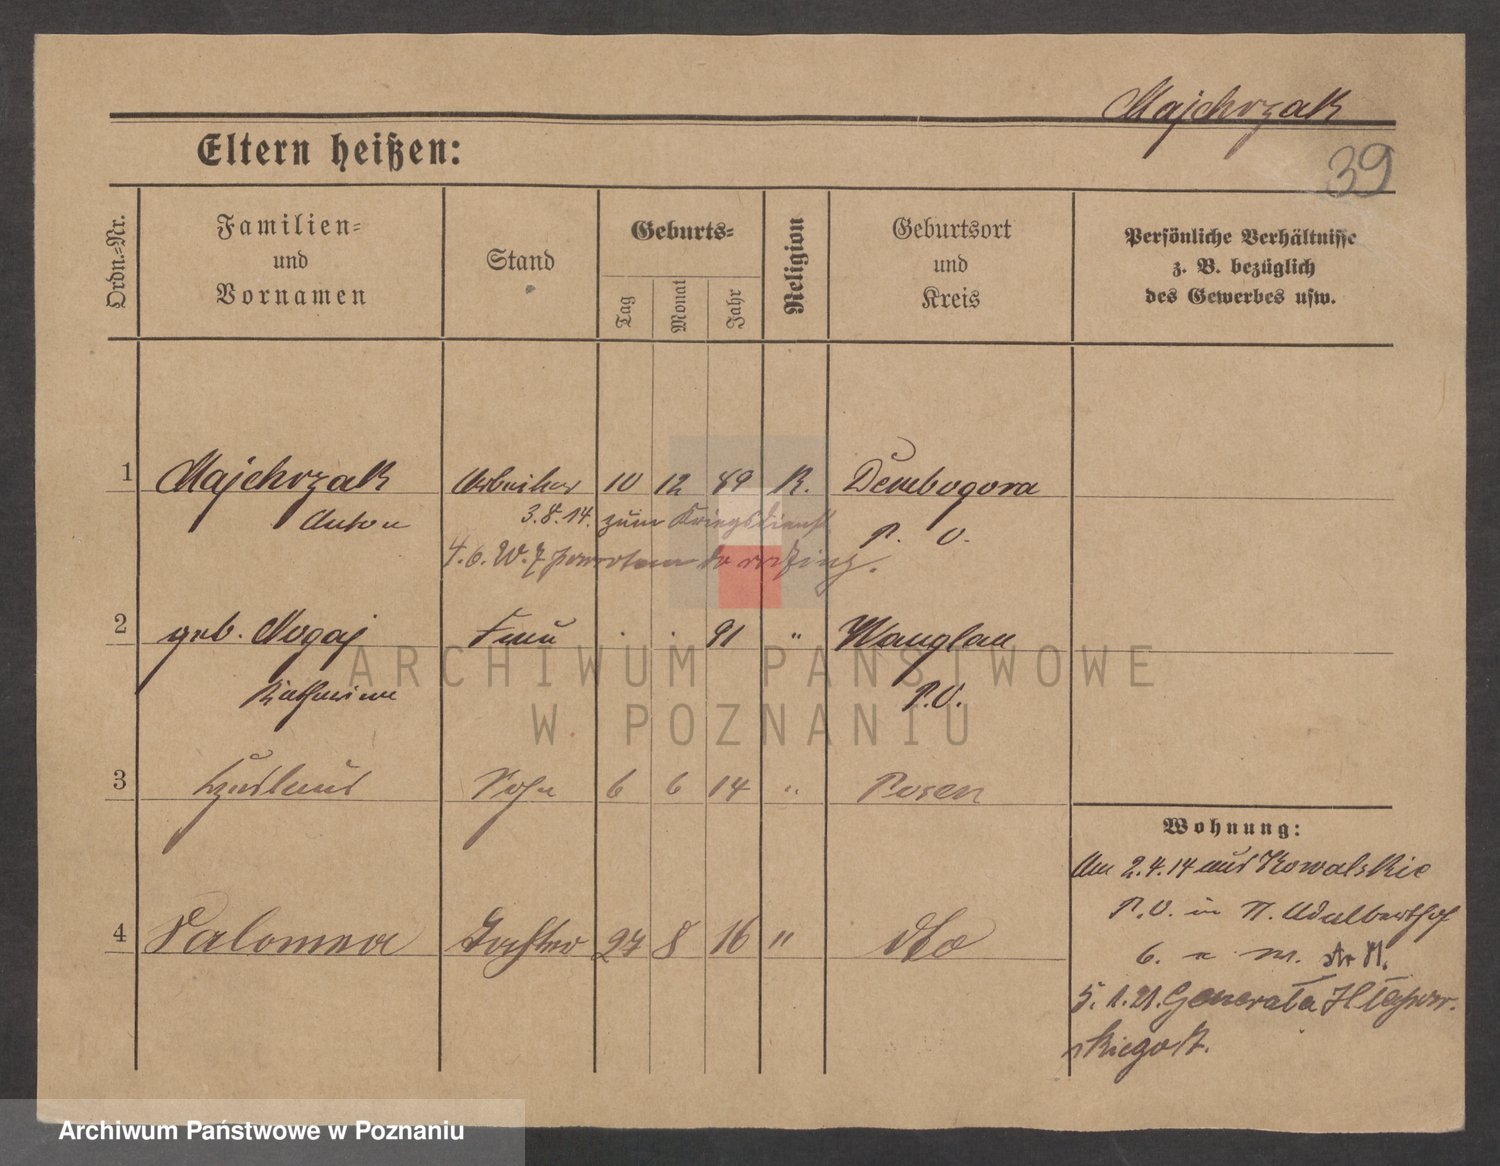 Majchrzak
39
Eltern heißen:
Ordn.-Nr.
Familien-
und
Vornamen
Stand
Geburts-
Tag
Monat
Jahr
Religion
Geburtsort
und
Kreis
Persönliche Verhältnisse
z. B. bezüglich
des Gewerbes usw.
1 Majchrzak Arbeiter 10 12 89 K. Dembogora
Anton 3.8.14. zum Kriegsdienst P. O.
2 geb. Nogaj Frau 91 " Wanglau
Katharina P.O.
3 Czeslaus Sohn 6 6 14 " Posen
4 Salomea Tochter 27 8 16 " dto
Wohnung:
Am 2.4.14 aus Kowalskie
P.O. in N. Adalberthof
6.
5.1.21. Generała
ARCHIWUM PAŃSTWOWE
W POZNANIU
Archiwum Państwowe w Poznaniu